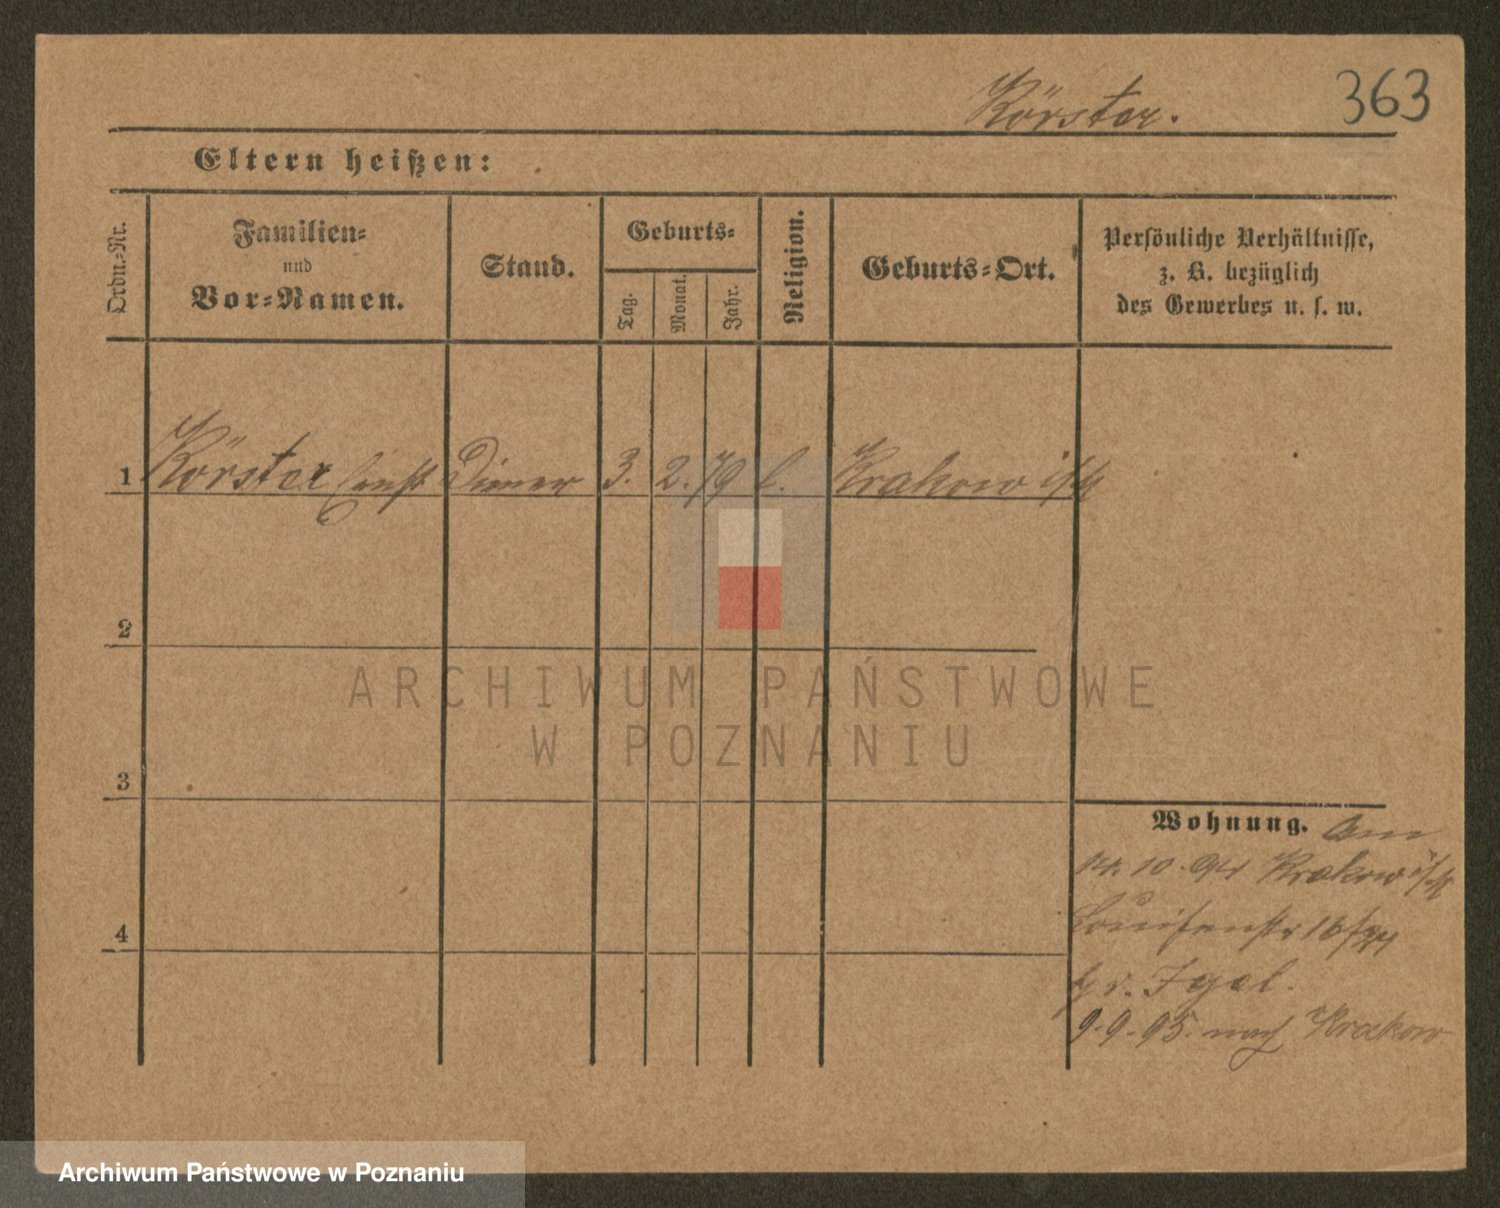 Körster.
363
Eltern heißen:
Ordn.-Nr.
Familien-
und
Vor-Namen.
Stand.
Geburts-
Tag.
Monat.
Jahr.
Religion.
Geburts-Ort.
Persönliche Verhältnisse,
z. B. bezüglich
des Gewerbes u. s. w.
1 Körster Ernst Diener 3. 2. 79 Krakow i/M
2
ARCHIWUM PAŃSTWOWE
W POZNANIU
3
4
Wohnung. Am
10. 94 Krakow i/M
Louisenstr 16
v. Igel.
9. 9. 95. nach Krakow
Archiwum Państwowe w Poznaniu